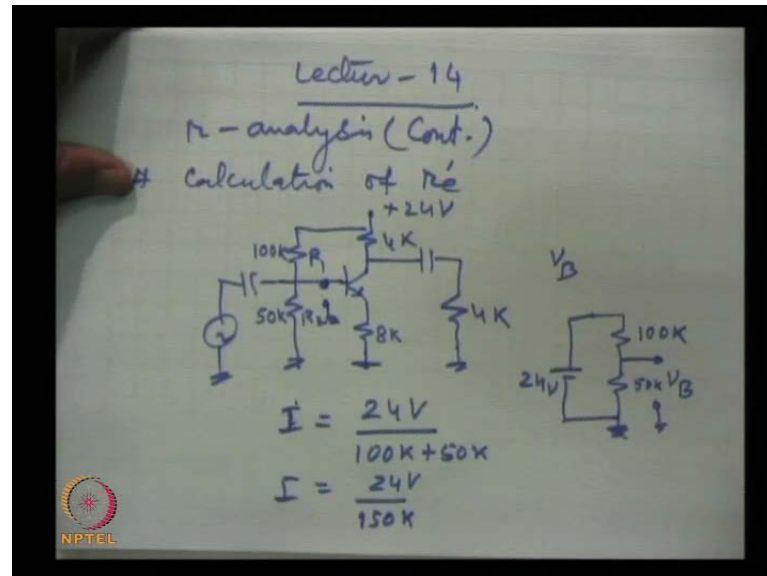 Lectur - 14
r - analysis (Cont.)
# Calculation of ŕe
+24V
4K
100K R1
50K R2
8K
4K
VB
24V
100K
50K VB
I = 24V
100K+50K
I = 24V
150K
NPTEL